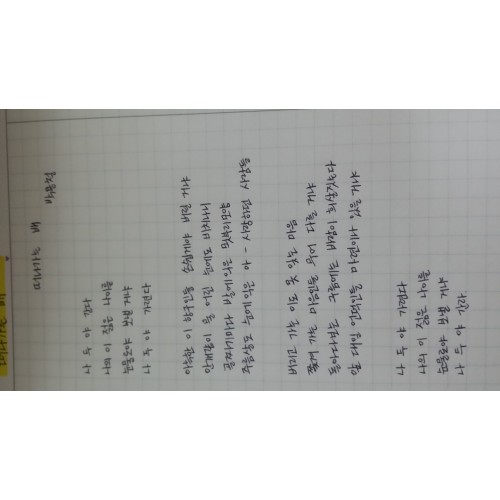 떠나가는 배
박용철
나 두 야 간다
나의 이 젊은 나이를
눈물로야 보낼거냐
나 두 야 가련다
아늑한 이 항구인들 손쉽게야 버릴 거냐
안개같이 물 어린 눈에도 비치나니
골짜기마다 발에 익은 묏부리모양
주름살도 눈에 익은 아 - 사랑하는 사람들
버리고 가는 이도 못 잊는 마음
쫓겨가는 마음인들 무어 다를거냐
돌아다보는 구름에는 바람이 희살짓는다
앞 대일 언덕인들 마련이나 있을 거냐
나 두 야 가련다
나의 이 젊은 나이를
눈물로야 보낼거냐
나 두 야 간다